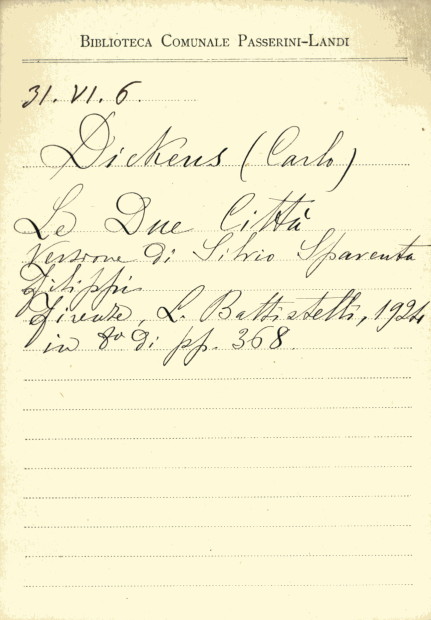 BIBLIOTECA COMUNALE PASSERINI-LANDI
31. VI. 6.
Dickens (Carlo)
Le Due Città
Versione di Silvio Spaventa
Filippi
Firenze, L. Battistelli, 1924
in 8º di pp. 368.